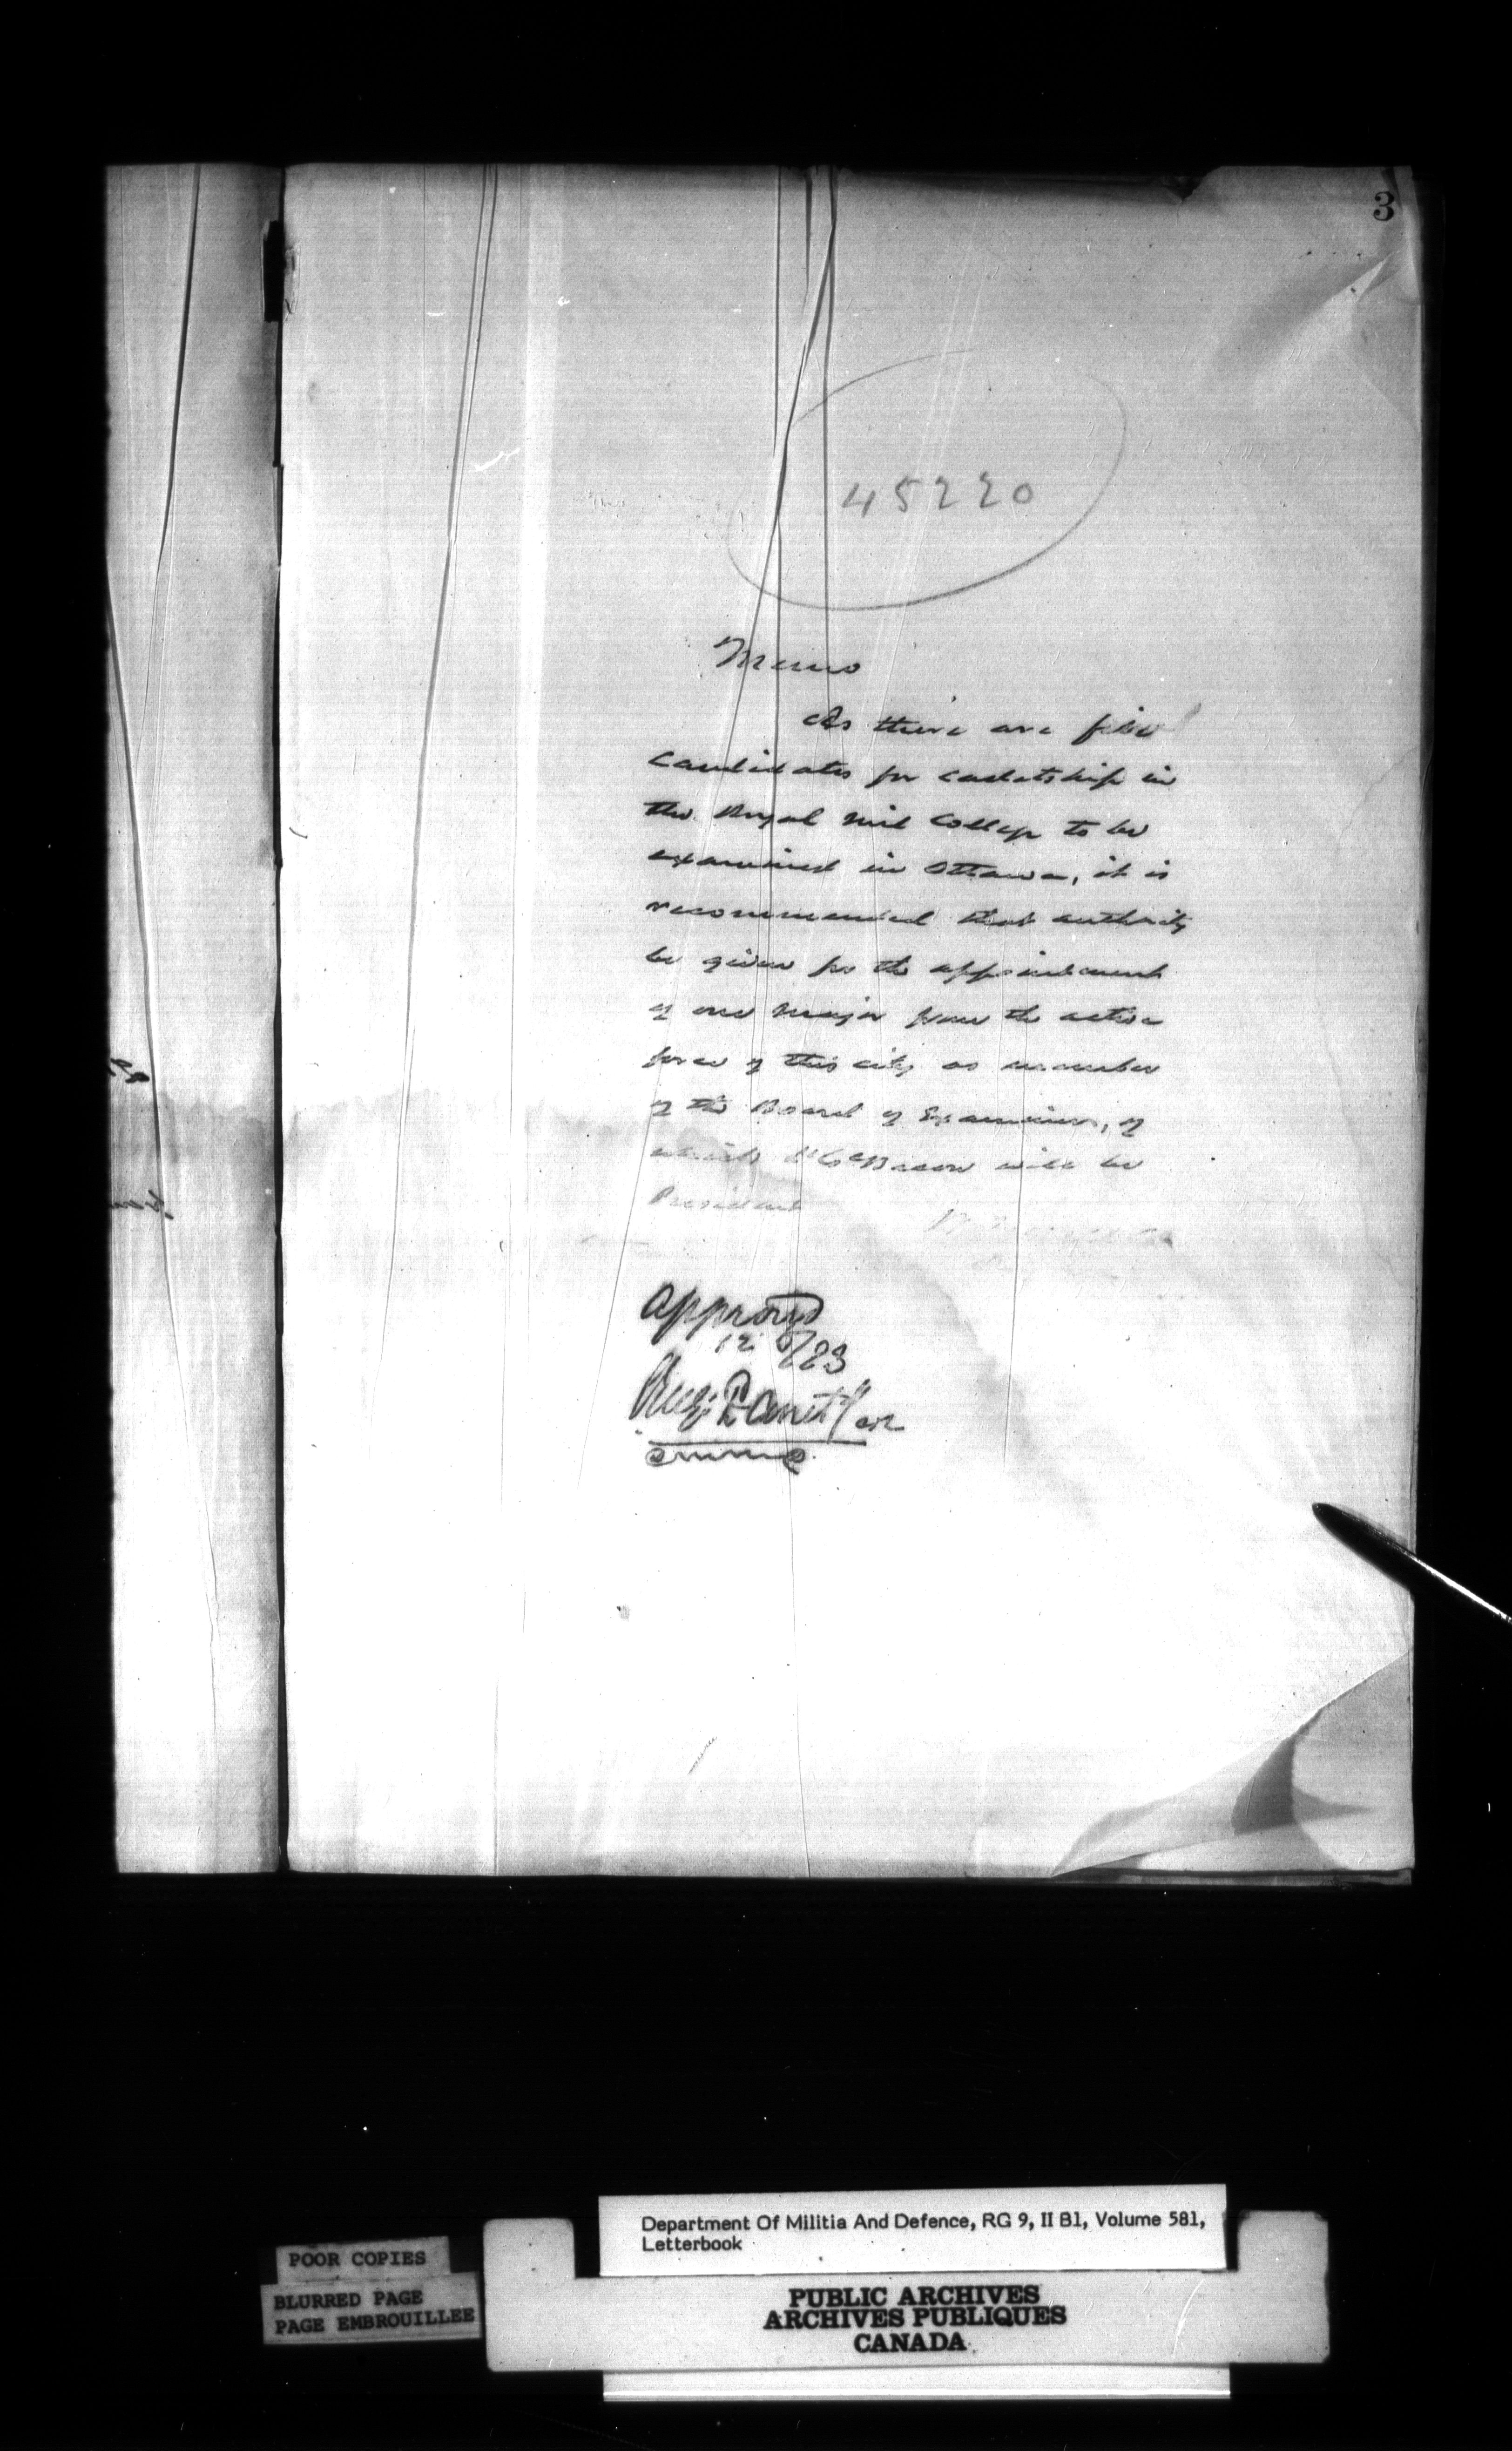 3
45220
Memo
As there are five
Candidates for cadetship in
the Royal Mil College to be
examined in Ottawa, it is
recommended that authority
be given for the appointment
of one Major from the active
force of this city as member
of the Board of Examiners, of
which Lt Col Bacon will be
President
approvd
12 /83
POOR COPIES
BLURRED PAGE
PAGE EMBROUILLEE
Department Of Militia And Defence, RG 9, II B1, Volume 581,
Letterbook
PUBLIC ARCHIVES
ARCHIVES PUBLIQUES
CANADA